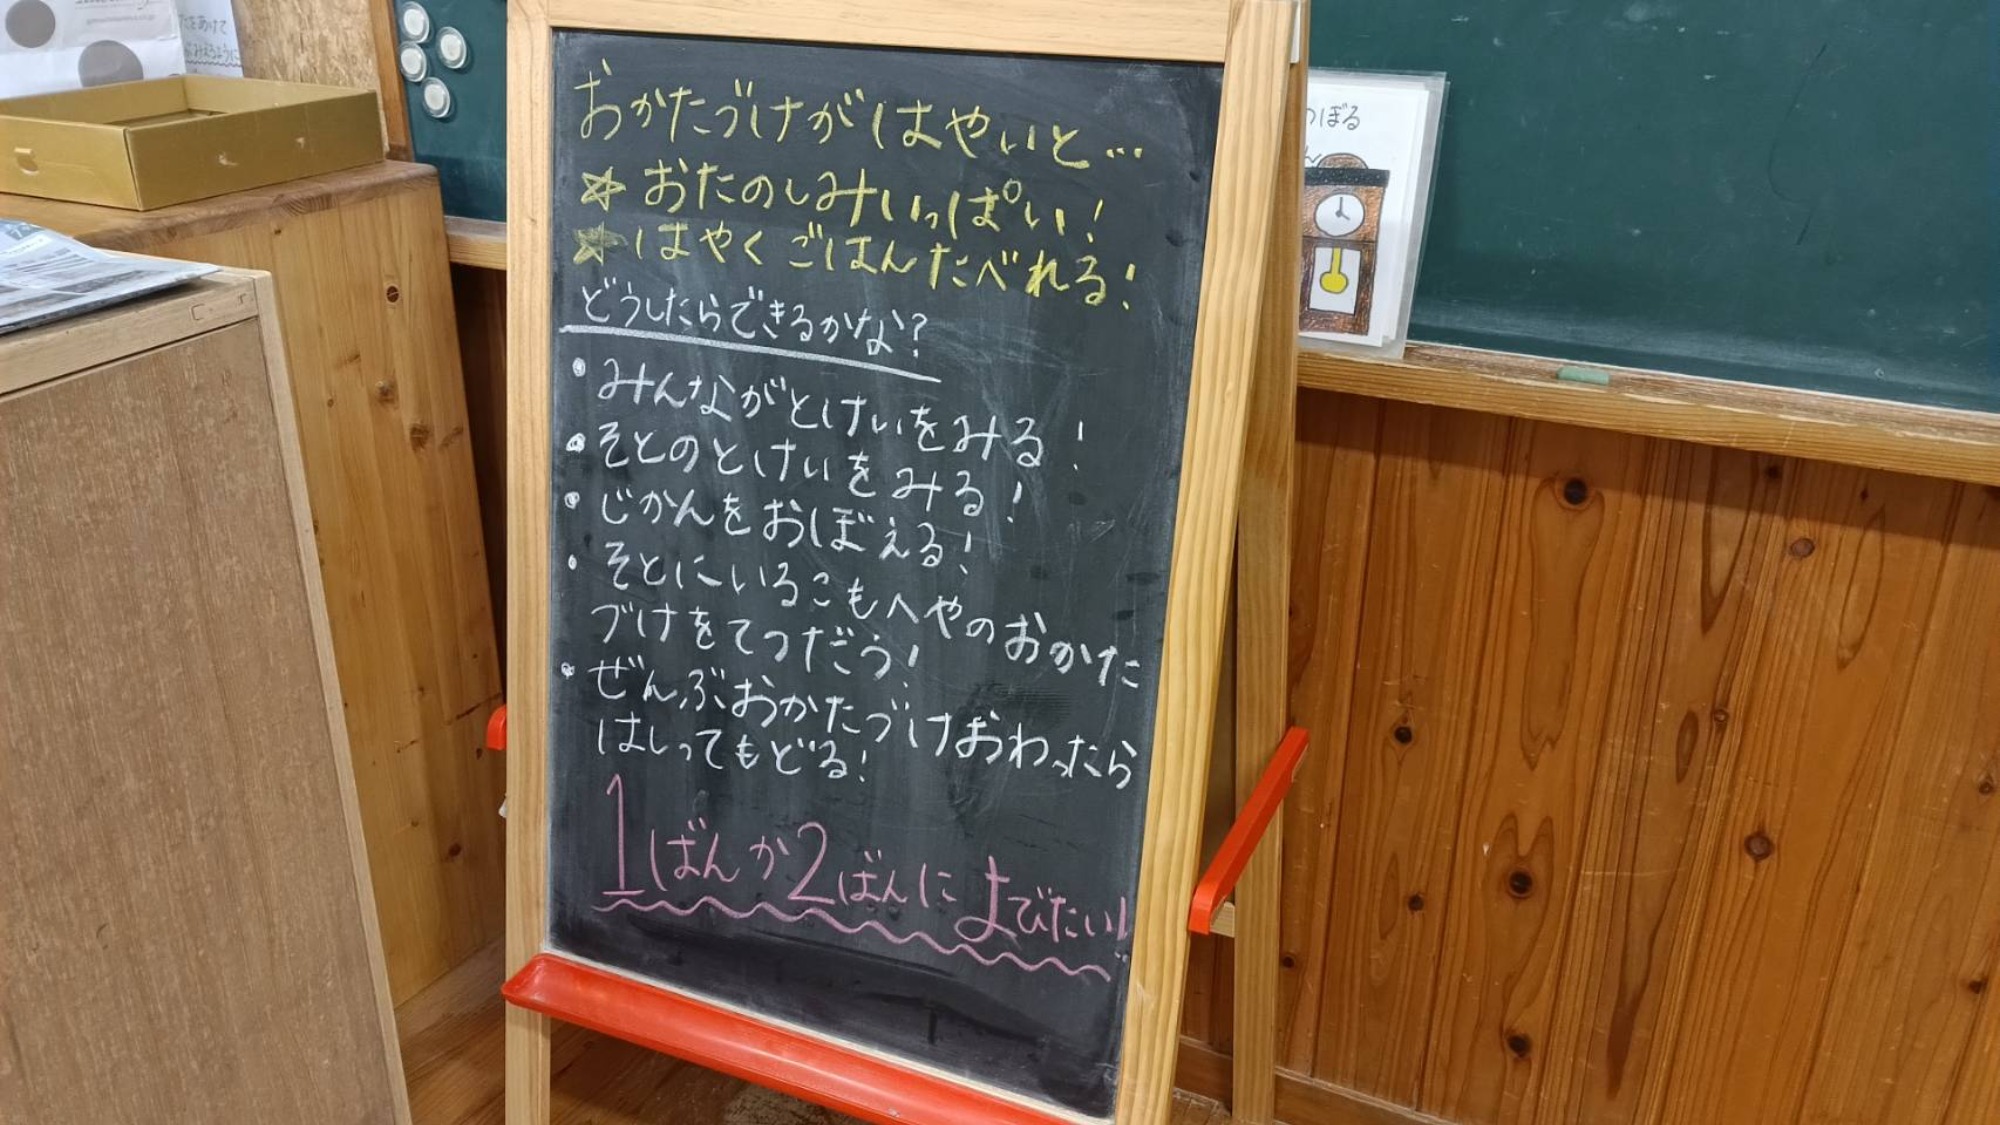 おかたづけがはやいと…
☆ おたのしみいっぱい!
☆ はやくごはんたべれる!
どうしたらできるかな?
・みんながとけいをみる!
・そとのとけいをみる!
・じかんをおぼえる!
・そとにいるこもへやのおかた
づけをてつだう!
・ぜんぶおかたづけおわったら
はしってもどる!
1ばんか2ばんによびたい!
たをあけて
みえるように
ぼる